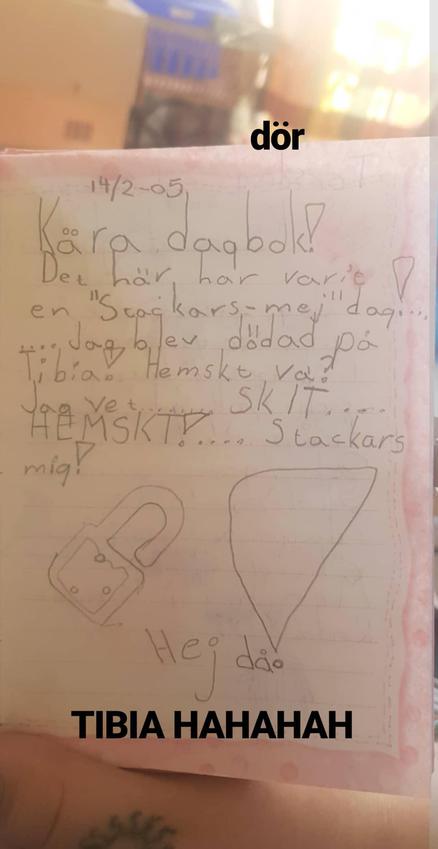 dör
14/2-05
Kära dagbok!
Det här har vari'e
en "Stackars-mej" dag!...
.... Jag blev dödad på
Tibia! Hemskt va?
Jag vet....... SKIT....
HEMSKT!.... Stackars
mig!
Hej då!
TIBIA HAHAHAH